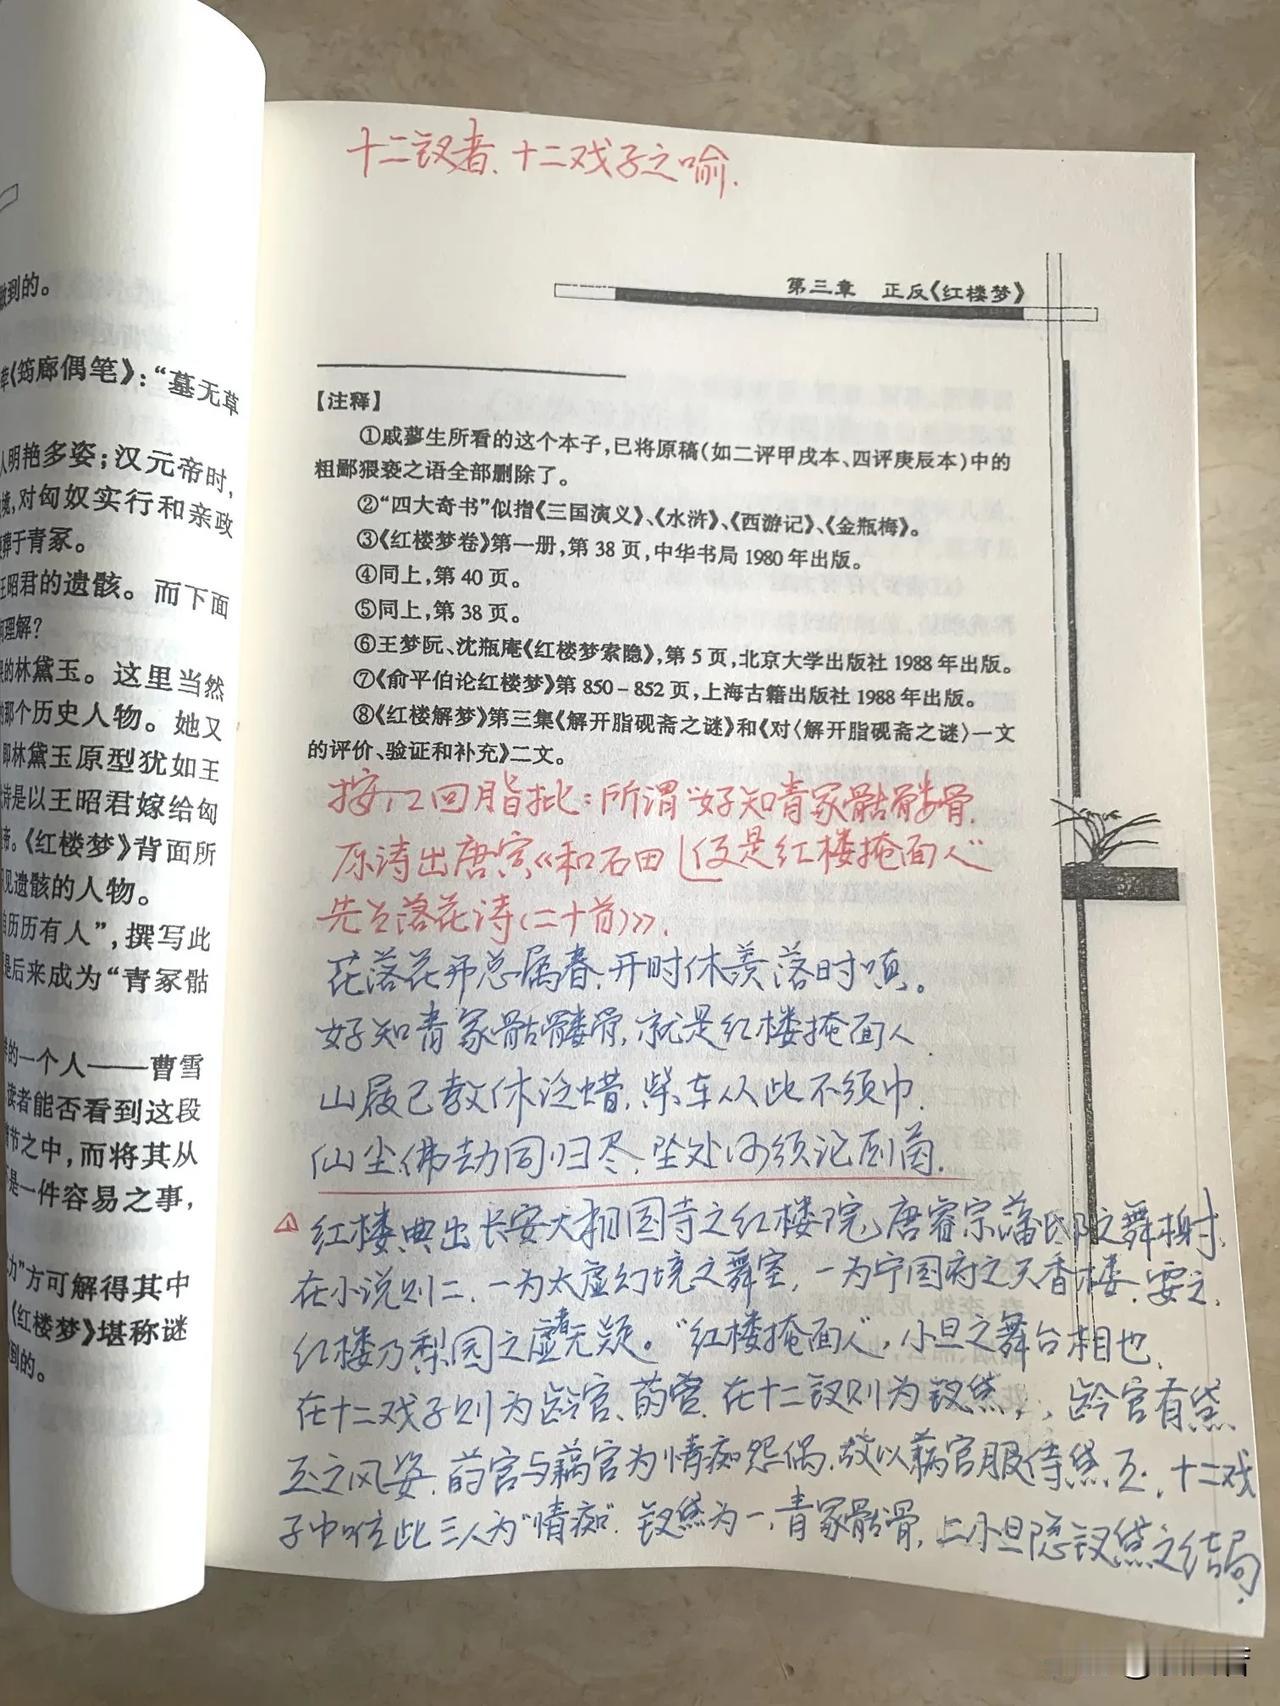 敢到的。
《筠廊偶笔》：“墓无草
人明艳多姿；汉元帝时，
境，对匈奴实行和亲政
葬于青冢。
王昭君的遗骸。而下面
理解？
的林黛玉。这里当然
的那个历史人物。她又
即林黛玉原型犹如王
诗是以王昭君嫁给匈
帝。《红楼梦》背面所
见遗骸的人物。
历历有人”，撰写此
是后来成为“青冢骷
的一个人——曹雪
读者能否看到这段
情节之中，而将其从
是一件容易之事，
力”方可解得其中
《红楼梦》堪称谜
到的。
十二钗者、十二戏子之喻.
第三章 正反《红楼梦》
【注释】
①戚蓼生所看的这个本子，已将原稿（如二评甲戌本、四评庚辰本）中的
粗鄙猥亵之语全部删除了。
②“四大奇书”似指《三国演义》、《水浒》、《西游记》、《金瓶梅》。
③《红楼梦卷》第一册，第 38 页，中华书局 1980 年出版。
④同上，第 40 页。
⑤同上，第 38 页。
⑥王梦阮、沈瓶庵《红楼梦索隐》，第 5 页，北京大学出版社 1988 年出版。
⑦《俞平伯论红楼梦》第 850－852 页，上海古籍出版社 1988 年出版。
⑧《红楼解梦》第三集《解开脂砚斋之谜》和《对〈解开脂砚斋之谜〉一文
的评价、验证和补充》二文。
按,12回脂批：所谓“好知青冢骷髅骨.
原诗出唐寅《和石田 便是红楼掩面人”
先生落花诗(二十首)》.
花落花开总属春,开时休羡落时嗔。
好知青冢骷髅骨,就是红楼掩面人.
山屐已教休泛蜡,柴车从此不须巾.
仙尘佛劫同归尽,坠处何须论厕茵.
红楼典出长安大相国寺之红楼院,唐睿宗藩邸之舞榭.
在小说则二,一为太虚幻境之舞室,一为宁国府之天香楼.要之,
红楼乃梨园之虚者无疑。“红楼掩面人”,小旦之舞台相也.
在十二戏子则为龄官、药官.在十二钗则为钗黛,,龄官有黛
玉之风姿.药官与藕官为情痴怨偶.故以藕官服侍黛玉.十二戏
子中唯此三人为“情痴”.钗黛为一,青冢骷骨,二小旦隐钗黛之结局.